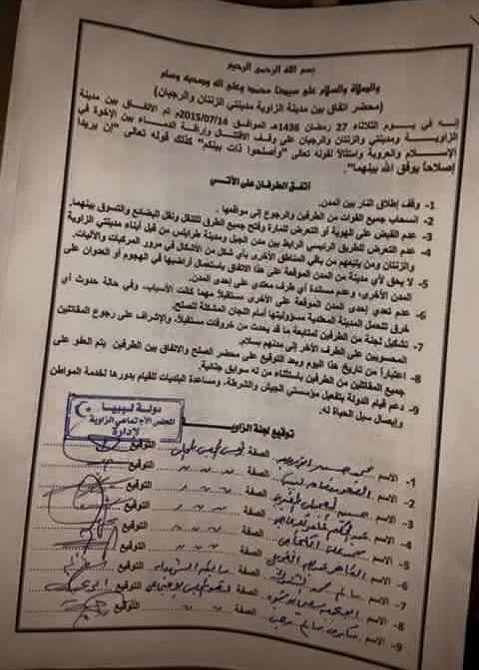 بسم الله الرحمن الرحيم
والصلاة والسلام على سيدنا محمد وعلى اله وصحبه وسلم
(محضر اتفاق بين مدينة الزاوية مدينتي الزنتان والرجبان)
إنه في يوم الثلاثاء 27 رمضان 1436هـ الموافق 2015/07/14م تم الاتفاق بين مدينة
الزاوية ومدينتي والزنتان والرجبان على وقف الاقتتال وإراقة الدماء بين الإخوة في
الإسلام والعروبة وامتثالاً لقوله تعالى "وأصلحوا ذات بينكم" كذلك قوله تعالى "إن يريدا
إصلاحاً يوفق الله بينهما".
أتفق الطرفان على الأتي
1- وقف إطلاق النار بين المدن.
2- انسحاب جميع القوات من الطرفين والرجوع إلى مواقعها.
3- عدم القبض على الهوية أو التعرض للمارة وفتح جميع الطرق للتنقل ونقل البضائع والتسوق بينهما.
4- عدم التعرض للطريق الرئيسي الرابط بين مدن الجبل ومدينة طرابلس من قبل أبناء مدينتي الزاوية
والزنتان ومن يتبعهم من باقي المناطق الأخرى بأي شكل من الأشكال في مرور المركبات والآليات.
5- لا يحق لأي مدينة من المدن الموقعة على هذا الاتفاق باستعمال أراضيها في الهجوم أو العدوان على
المدن الأخرى، وعدم مساندة أي طرف معتدي على إحدى المدن.
6- عدم تعدي إحدى المدن الموقعة على الأخرى مستقبلاً مهما كانت الأسباب، وفي حالة حدوث أي
خرق تتحمل المدينة المعتدية مسؤوليتها أمام اللجان المشكلة للصلح.
7- تشكيل لجنة من الطرفين لمتابعة ما قد يحدث من خروقات مستقبلاً، والإشراف على رجوع المقاتلين
المحسوبين على الطرف الأخر إلى مدنهم بسلام.
8- اعتباراً من تاريخ هذا اليوم وبعد التوقيع على محضر الصلح والاتفاق بين الطرفين يتم العفو على
جميع المقاتلين من الطرفين باستثناء من له سوابق جنائية.
9- دعم قيام الدولة بتفعيل مؤسستي الجيش والشرطة، ومساعدة البلديات للقيام بدورها لخدمة المواطن
وإيصال سبل الحياة له.
توقيع لجنة الزاوية
دولة ليبيا
الاجتماعي الزاوية
1- الاسم محمد الصفة التوقيع
2- الاسم الصفة التوقيع
3- الاسم الصفة التوقيع
4- الاسم الصفة التوقيع
5- الاسم الصفة التوقيع
6- الاسم الصفة التوقيع
7- الاسم سالم محمد الصفة التوقيع
8- الاسم الصفة التوقيع
9- الاسم الصفة التوقيع